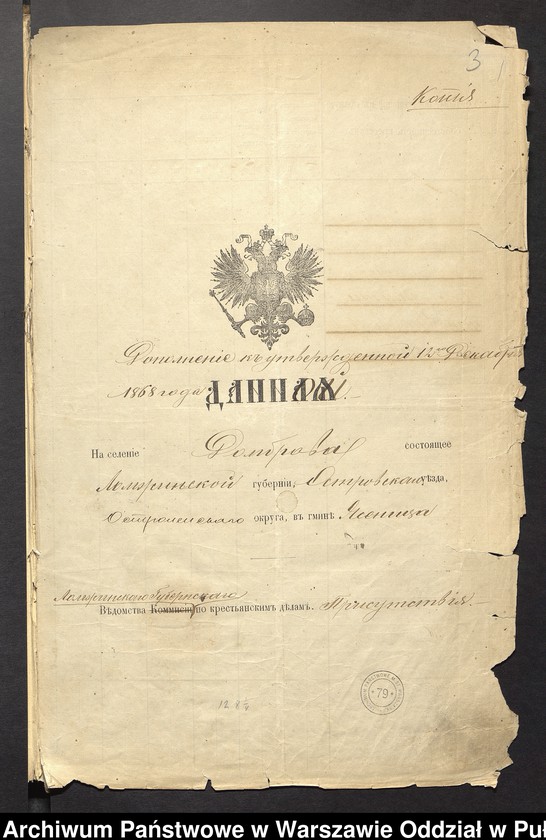 3
Копія
Дополненіе къ утвержденной 12го Декабря
1868 года ДАННОЙ.
На селеніе Домброва состоящее
Ломжинской губерніи, Островскаго уѣзда,
округа, въ гминѣ Ясеница
Ломжинскаго Губернскаго
Вѣдомства Коммисіи по крестьянскимъ дѣламъ. Присутствія.
79
Archiwum Państwowe w Warszawie Oddział w Pu